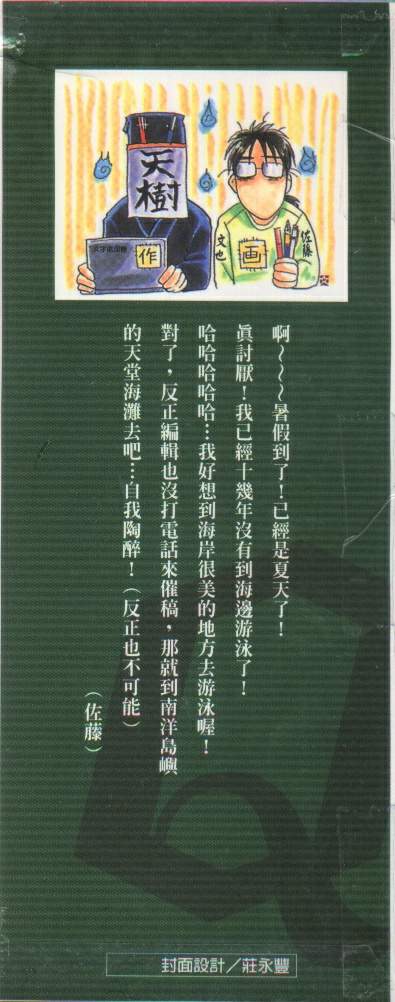 天樹
作
画
佐藤
文也
啊～～～暑假到了！已經是夏天了！
眞討厭！我已經十幾年沒有到海邊游泳了！
哈哈哈哈哈…我好想到海岸很美的地方去游泳喔！
對了，反正編輯也沒打電話來催稿，那就到南洋島嶼
的天堂海灘去吧…自我陶醉！（反正也不可能）
（佐藤）
封面設計／莊永豐